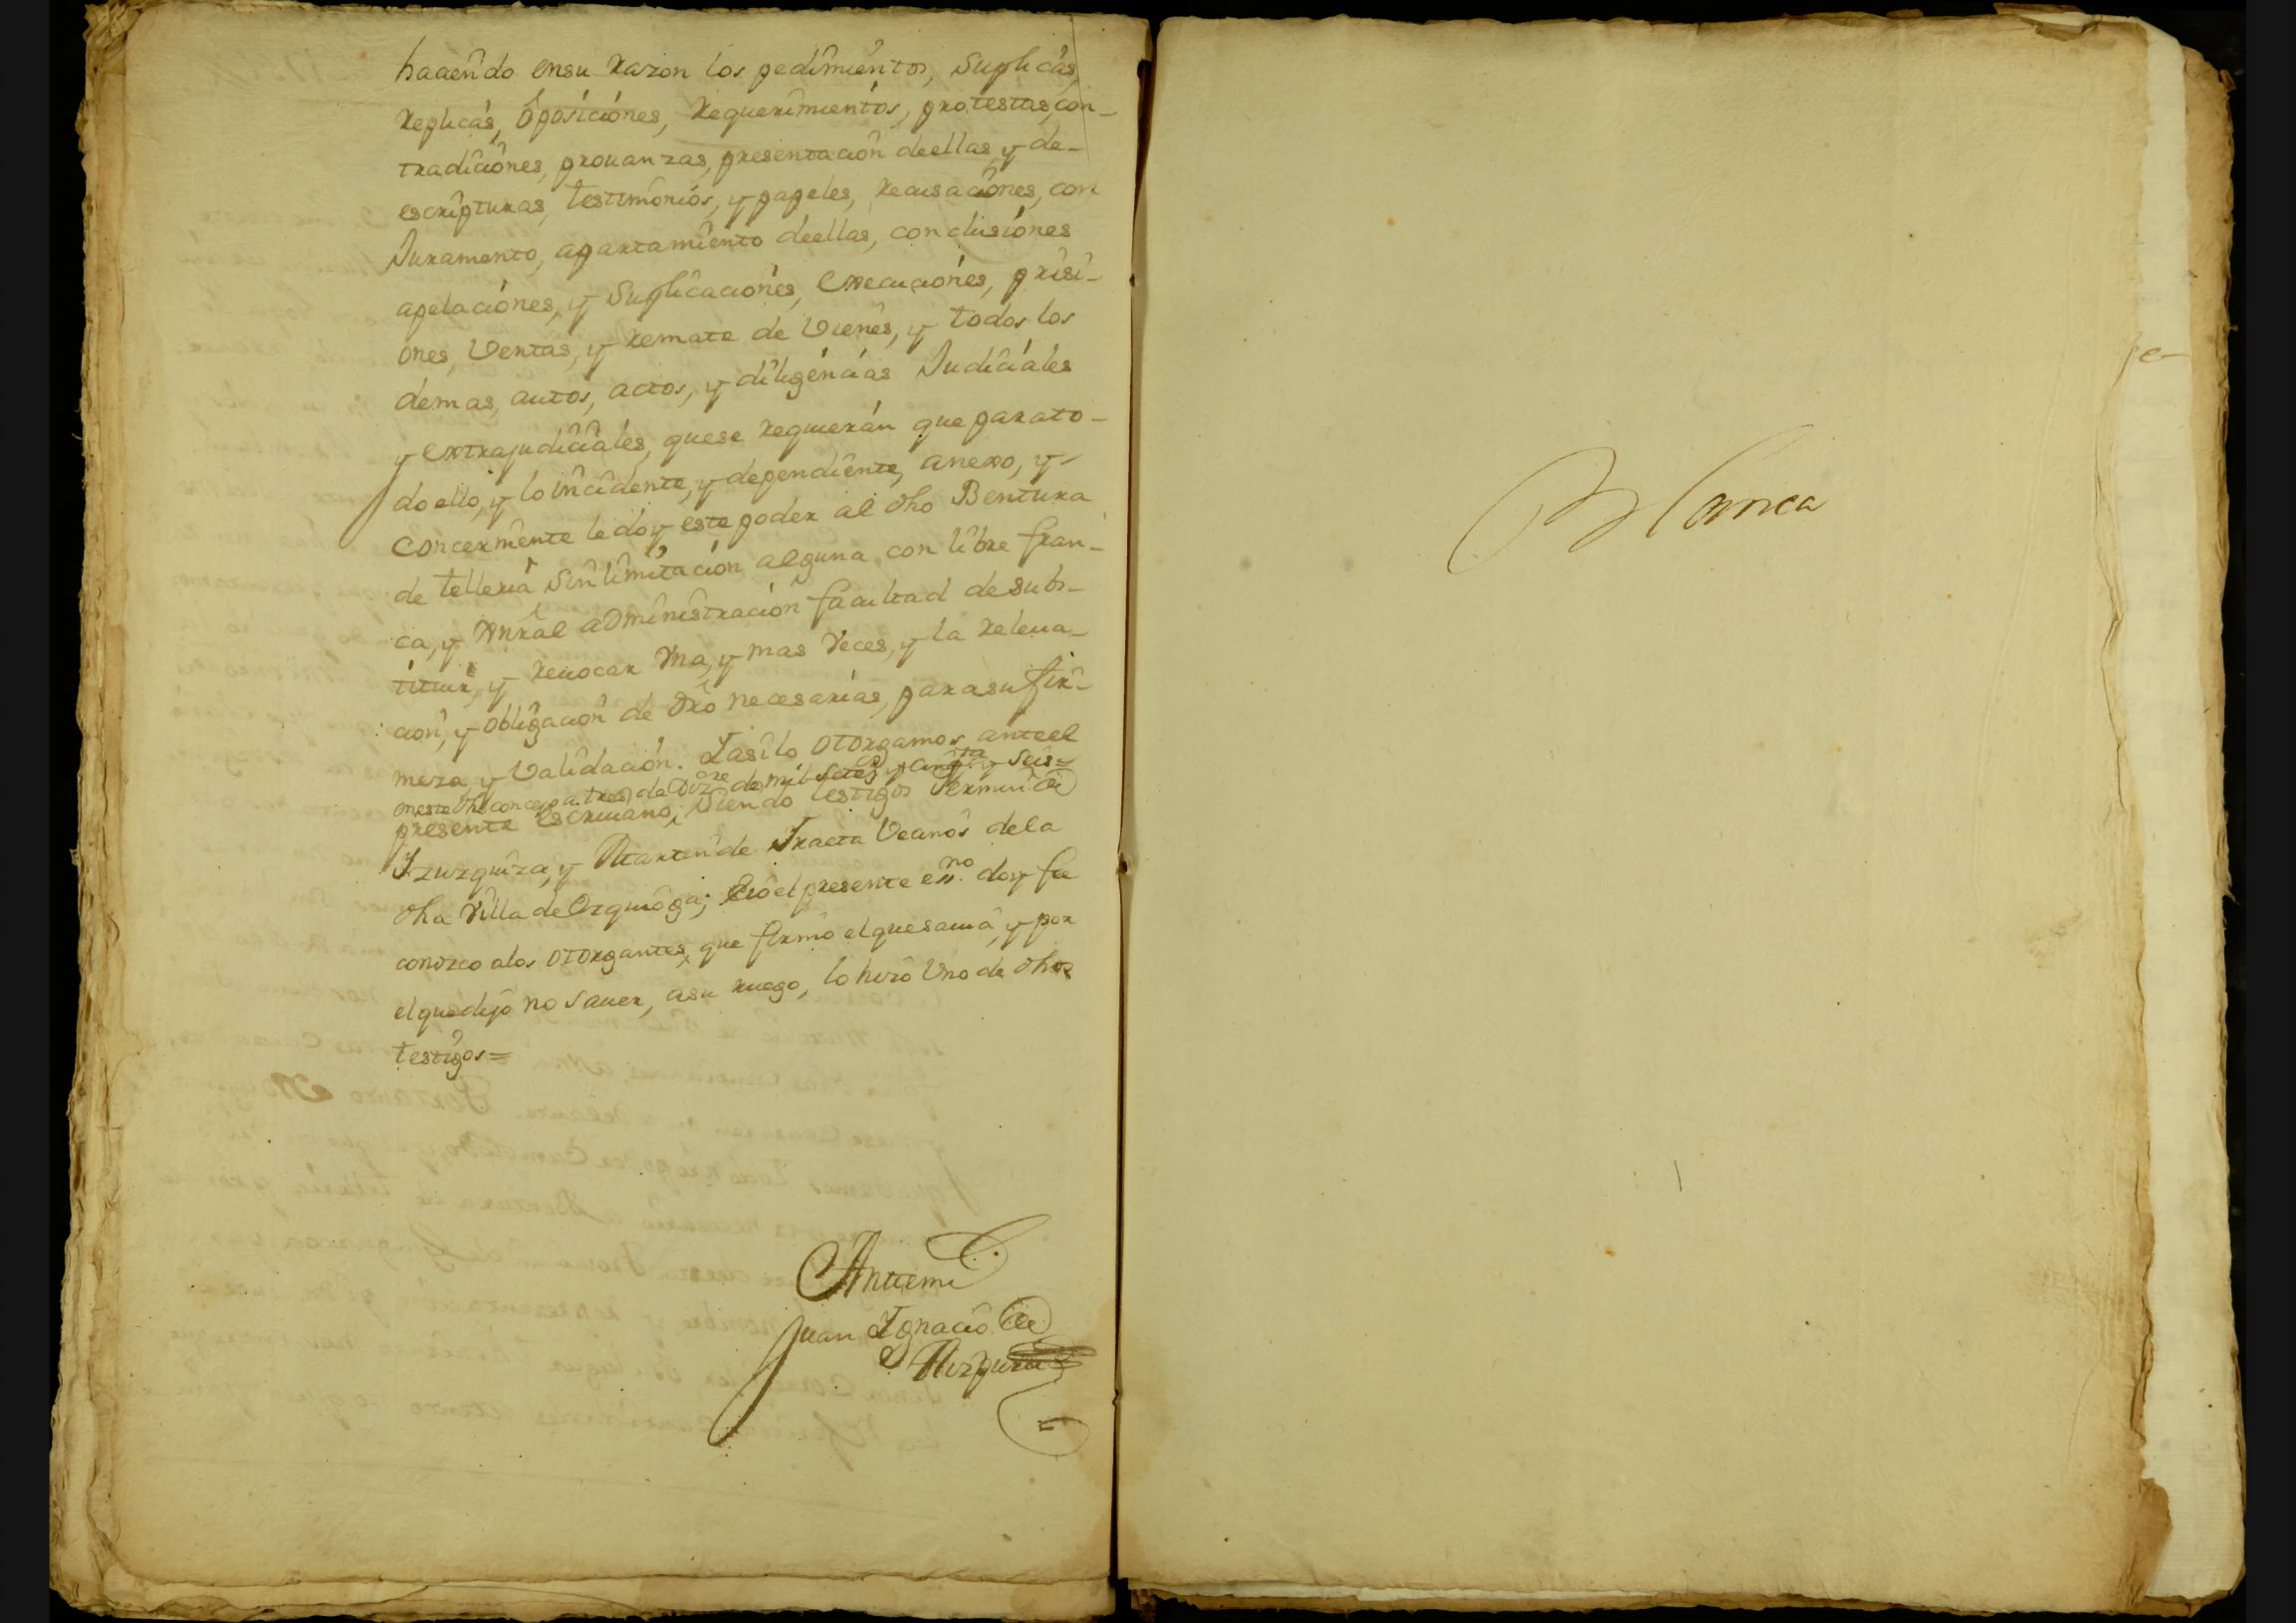 haciendo ensu razon los pedimientos, Suplicas,
replicas, oposiciones, requerimientos, protestas, con-
tradiciones, prouanzas, presentacion deellas, y de-
escripturas, testimonios, y papeles, recusaciones, con
Juramento, apartamiento deellas, conclusiones
apelaciones, y Suplicaciones, execuciones, prisi-
ones, Ventas, y remate de Vienes, y todos los
demas, autos, actos, y diligencias Judiciales
y extrajudiciales, quese requieran que parato-
do ello, y lo incidente, y dependiente, anexo, y
concerniente le doy este poder al dho Bentura
de telleria sin limitacion alguna, con libre fran-
ca, y administracion facultad de subs-
tituir, y reuocar Vna, y mas Veces, y la releua-
cion, y obligacion de dro necesarias, parasu fir-
meza, y Validacion. Iasilo otorgamos anteel
eneste dho concejo a tres de Dizre de mil setes y cinqta y seis=
presente escriuano, siendo testigos Fermin de
Izurquiza, y Martin de Iraeta Vecinos dela
dha Villa de Ezquioga; Eio el presente essno. doy fee
conozco alos otorgantes, que firmo elquesauia, y por
elquedijo no sauer, asu ruego, lo hizo Vno de dhos
testigos=
Antemi
Juan Ignacio de
Blanca